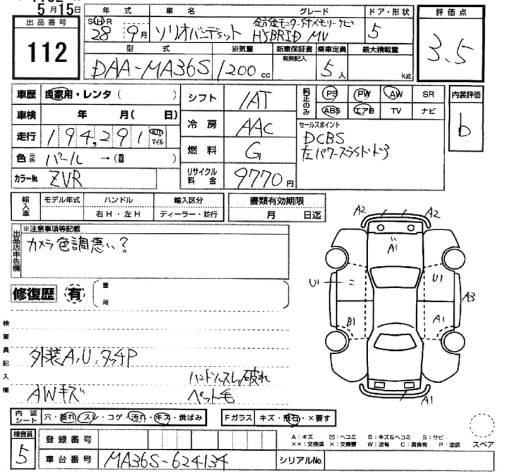 5月15日
出品番号
112
年式 車名 グレード ドア・形状 評価点
28 9月 ソリオバンデット 全方位モニター付メモリーナビ HYBRID MV 5 3.5
型式 排気量 新車保証書 乗車定員 最大積載量
有無記入
DAA-MA36S 1200cc 5人 kg
車歴 自家用・レンタ( ) シフト 1AT 純正のみ PS PW AW SR 内装評価
ABS エアB TV ナビ
車検 年 月( 日) 冷房 AAC セールスポイント b
走行 194,291 マイル DCBS
左パワースライドドア
色 パール→( ) 燃料 G
カラーNo ZVR リサイクル料金 9770円
輸入車 モデル年式 ハンドル 輸入区分 書類有効期限
右H・左H ディーラー・並行 月 日迄
出品店申告欄 ※注意事項等記載
カメラ色調悪い?
A2 A2
A1
修復歴 有 箇所
U1 U1
A3
B1 A1
検査員記入欄
外装A,U,タッチP
ハンドルスレ破れ
AWキズ ペット毛
A1
内装シート 穴・破れ・スレ・コゲ・汚れ・キズ・黄ばみ Fガラス キズ・飛石・×要す
スペア
検査員 5 登録番号
A:キズ U:ヘコミ B:キズ&ヘコミ S:サビ
××:交換済 ×:要交換 W:波有 C:腐食有 P:塗装
車台番号 MA36S-624134 シリアルNo.